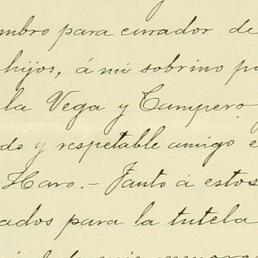 mbro para curador de
hijos, á mi sobrino
la Vega y Campero
do y respetable amigo
Haro.- Tanto á estos
ados para la tutela